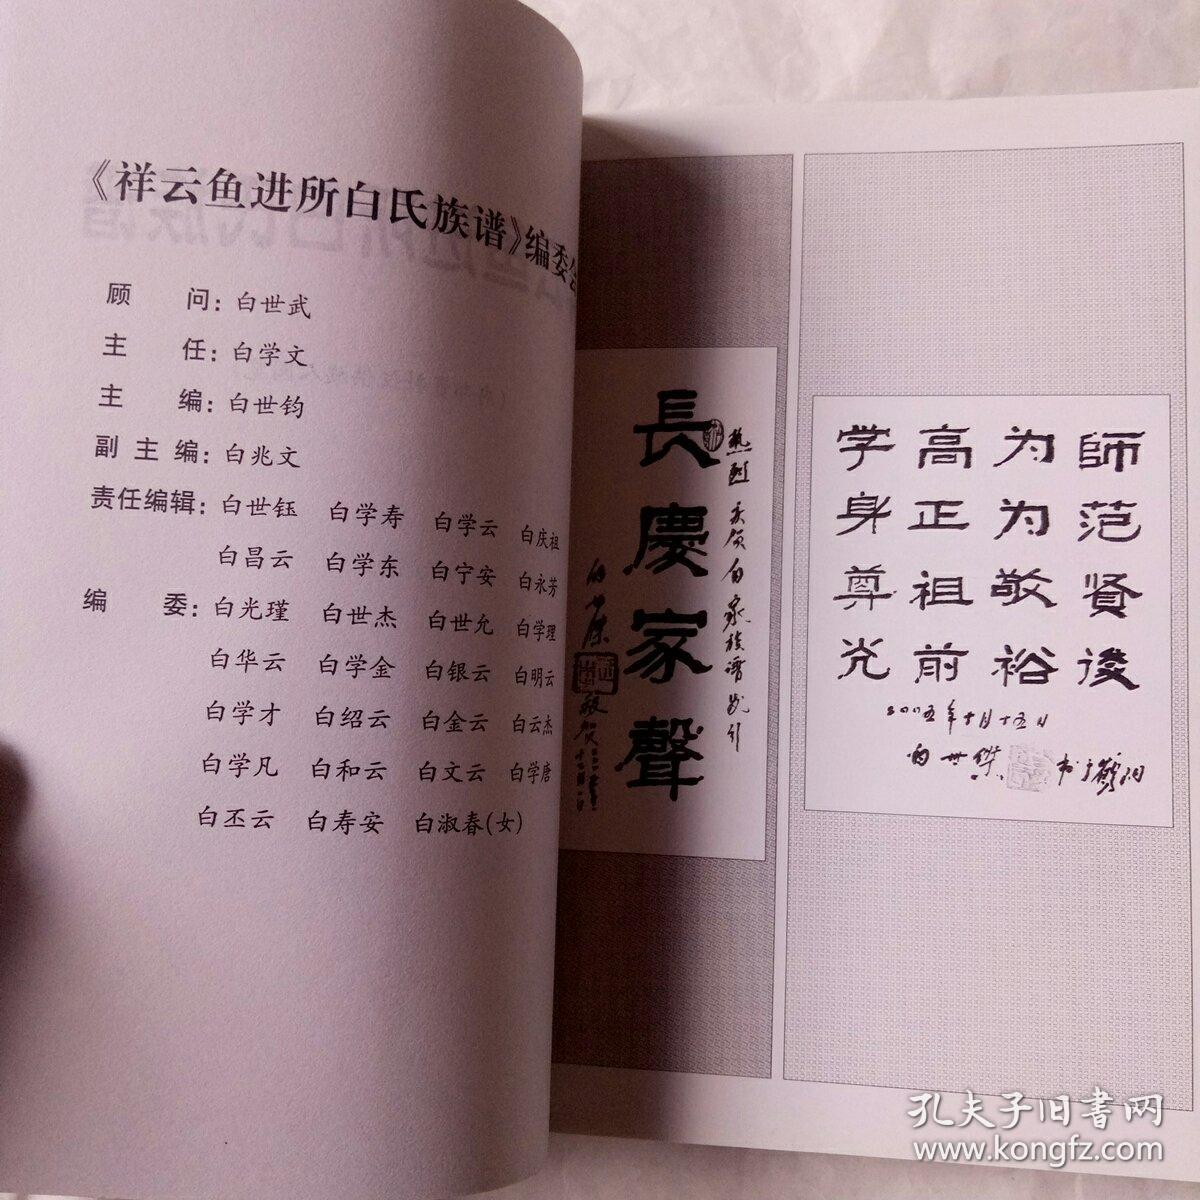 《祥云鱼进所白氏族谱》编委会
顾 问：白世武
主 任：白学文
主 编：白世钧
副 主 编：白兆文
责任编辑：白世钰 白学寿 白学云 白庆祖
白昌云 白学东 白宁安 白永芳
编 委：白光瑾 白世杰 白世允 白学理
白华云 白学金 白银云 白明云
白学才 白绍云 白金云 白云杰
白学凡 白和云 白文云 白学唐
白丕云 白寿安 白淑春（女）
長慶家聲
学高为師
身正为范
尊祖敬賢
光前裕後
二〇〇五年十月十五日
白世傑
孔夫子旧书网
www.kongfz.com